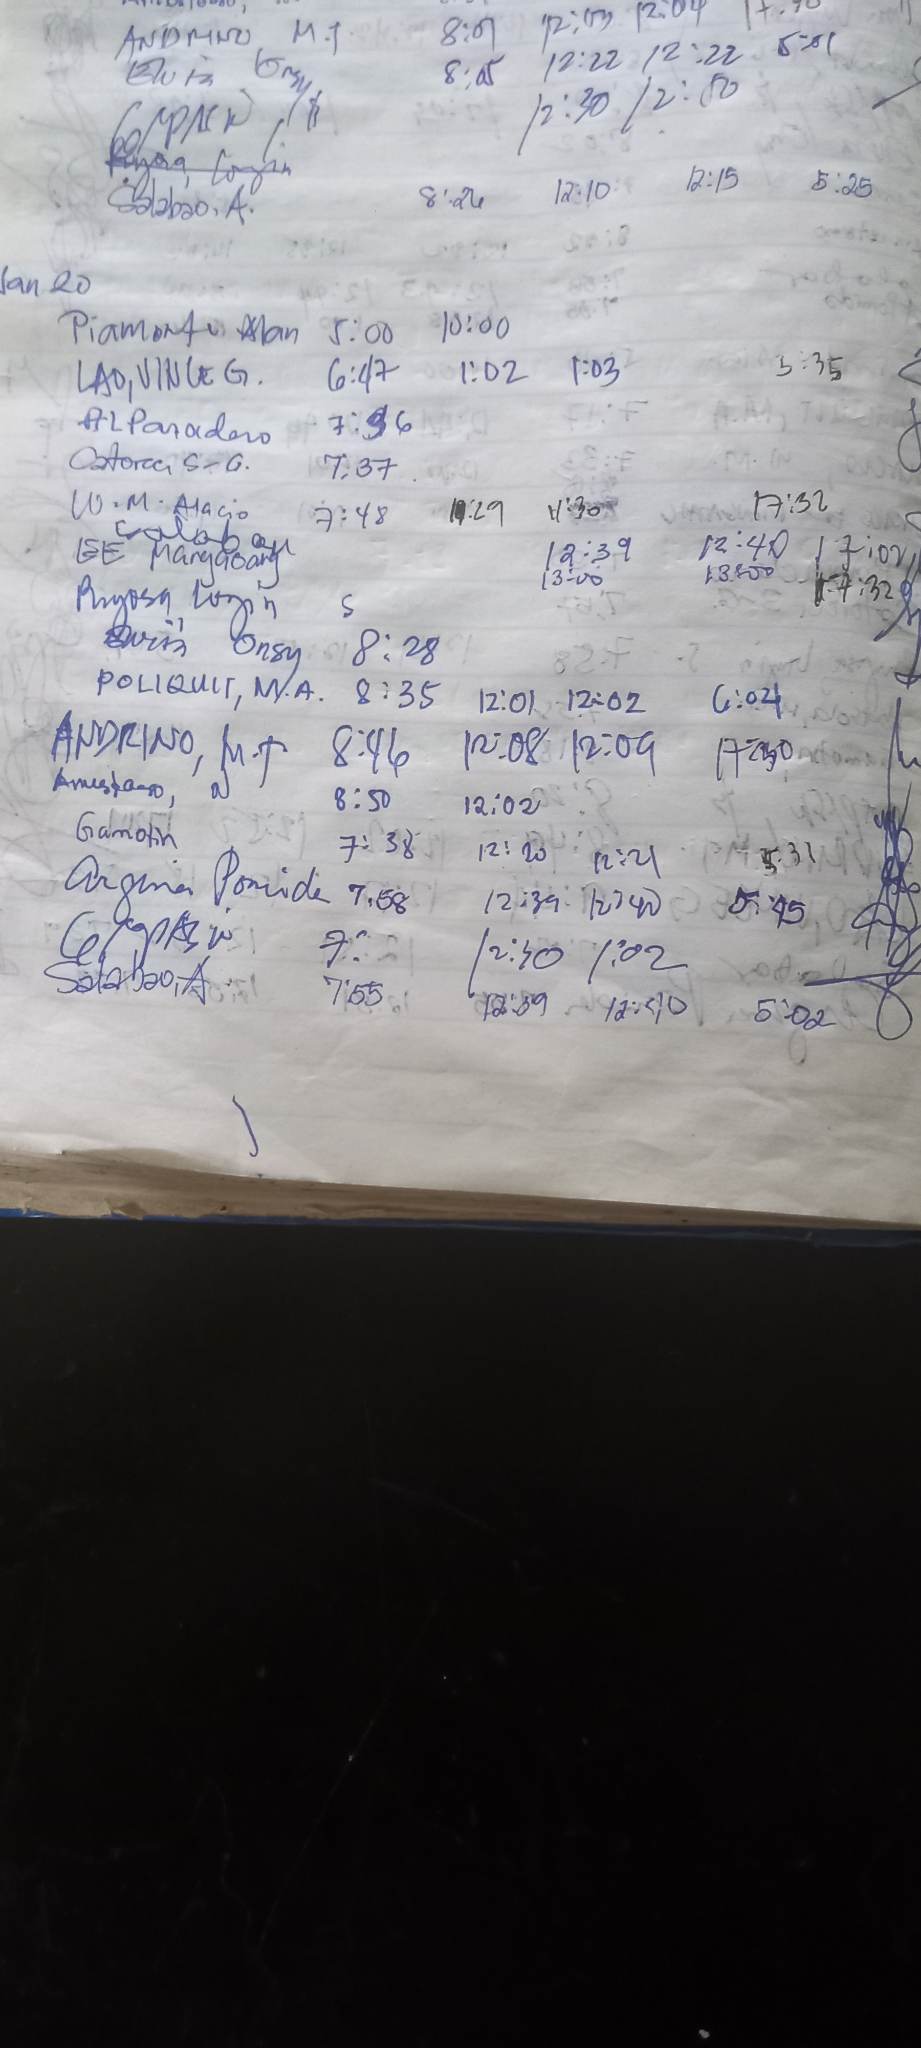 ANDRINO M.J 8:01 12:03 12:04
Ongy 8:05 12:22 12:22 5:01
12:30 12:50
Salabao, A. 8:26 12:10 12:15 5:25
Jan 20
Piamonte Alan 5:00 10:00
LAO, VINCE G. 6:47 1:02 1:03 5:35
AL Paradero 7:36
Catorce S-G. 7:37
W.M. Alacio 7:48 11:29 11:30 17:32
EE Mangabang 12:39 12:40 17:02
13:00 13:00 17:32
S
Ongy 8:28
POLIQUIT, M.A. 8:35 12:01 12:02 6:04
ANDRINO, M.J 8:46 12:08 12:09 17:30
N 8:50 12:02
Gamotin 7:38 12:20 12:21 5:31
7:58 12:39 12:40 5:45
7: 12:30 1:02
Salabao, A. 7:55 12:39 12:40 5:02